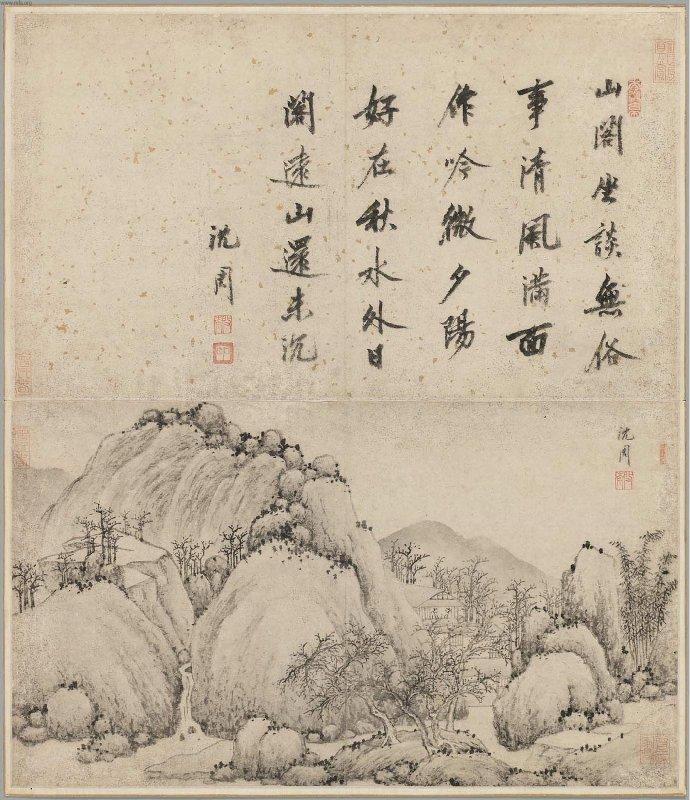 www.mfa.org
山閣坐談無俗
事清風滿面
作吟微夕陽
好在秋水外日
閣遠山還未沉
沈周
沈周